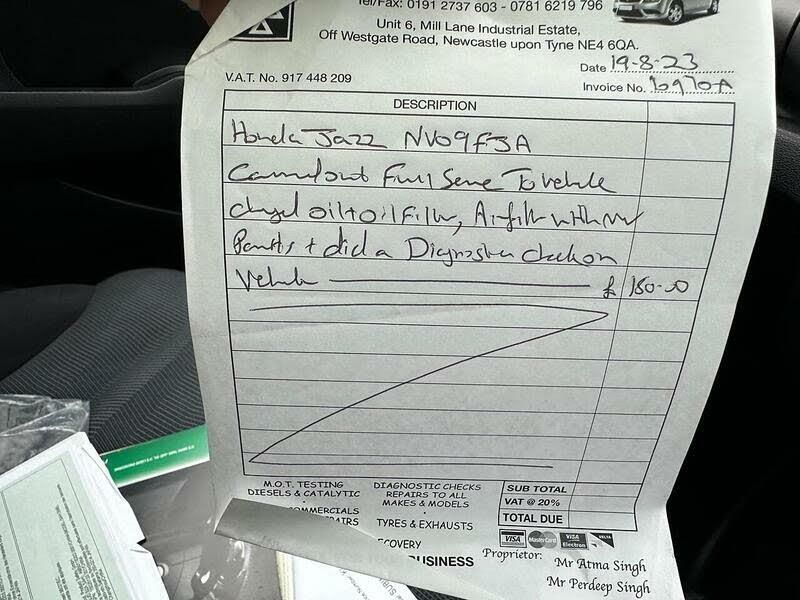 Tel/Fax: 0191 2737 603 - 0781 6219 796
Unit 6, Mill Lane Industrial Estate,
Off Westgate Road, Newcastle upon Tyne NE4 6QA.
Date 19-8-23
V.A.T. No. 917 448 209
Invoice No.
DESCRIPTION
Honda Jazz NV09FJA
Full To Vehicle
oil + oil Filter, Air filter with new
Parts + did a Diagnostic check on
Vehicle £ 180-00
M.O.T. TESTING
DIESELS & CATALYTIC
DIAGNOSTIC CHECKS
REPAIRS TO ALL
MAKES & MODELS
TYRES & EXHAUSTS
BUSINESS
SUB TOTAL
VAT @ 20%
TOTAL DUE
VISA MasterCard VISA Electron DELTA
Proprietor: Mr Atma Singh
Mr Perdeep Singh